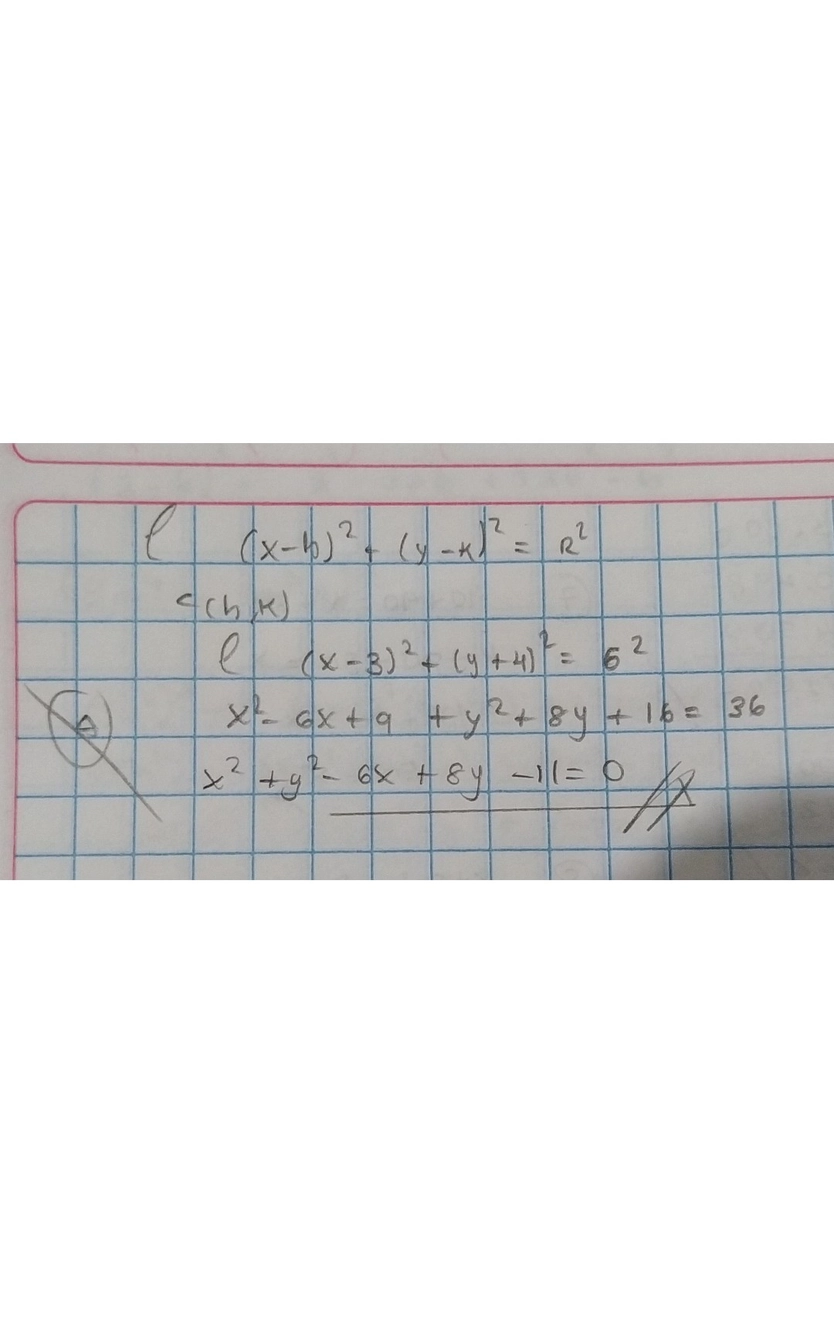 ℓ (x-h)² + (y-k)² = R²
c(h,k)
ℓ (x-3)² + (y+4)² = 6²
x² - 6x + 9 + y² + 8y + 16 = 36
x² + y² - 6x + 8y - 11 = 0